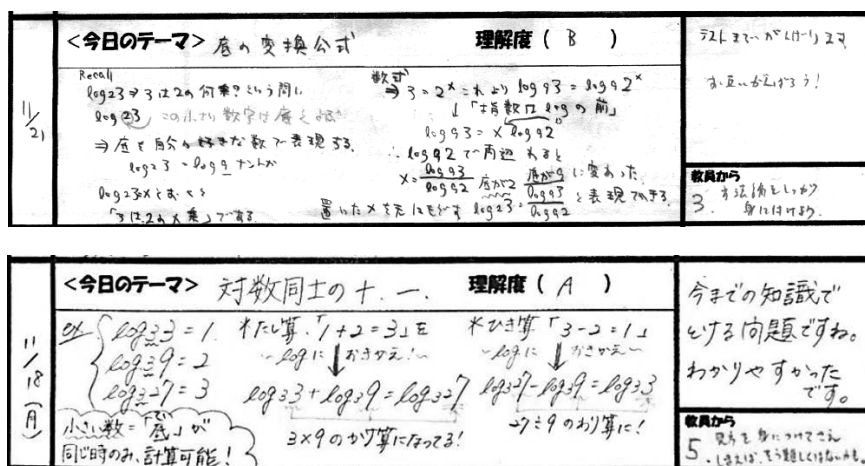 11/21
<今日のテーマ> 底の変換公式
理解度 ( B )
Recall
log23⇒3は2の何乗?という問い
log23 この小さい数字は底とよぶ
⇒底を自分の好きな数で表現する。
log23=log9ナントカ
log23=xとおくと
「3は2のx乗」である。
数式
⇒3=2^x これより log93=log92^x
↓「指数はlogの前」
log93=xlog92
∴log92で両辺わると
x=log93/log92 底が2 底が9に変わった
置いたxを元にもどす log23=log93/log92と表現できる
テストまでがんばります
お互いがんばろう!
教員から
3. 方法論をしっかり
身に付けよう.
11/18(月)
<今日のテーマ> 対数同士の+.ー.
理解度 ( A )
ex
log33=1.
log39=2
log327=3
小さい数=「底」が
同じ時のみ、計算可能!
*たし算.「1+2=3」を
~logに おきかえ!~
log33+log39=log327
3×9のかけ算になってる!
*ひき算「3-2=1」
~logに おきかえ~
log327-log39=log33
27÷9のわり算に!
今までの知識で
とける問題ですね。
わかりやすかった
です。
教員から
5. 見方を身につけてさえ
しまえば、そう難しくはないかも。